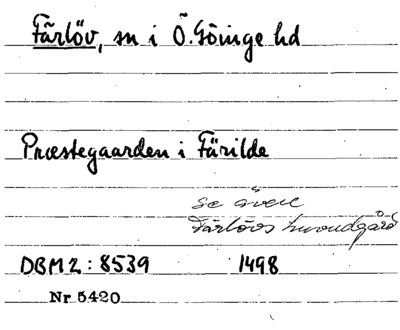 Färlöv, sn i Ö. Göinge hd
Præstegaarden i Färilde
se även
Färlövs huvudgård
DBM 2: 8539 1498
Nr 5420